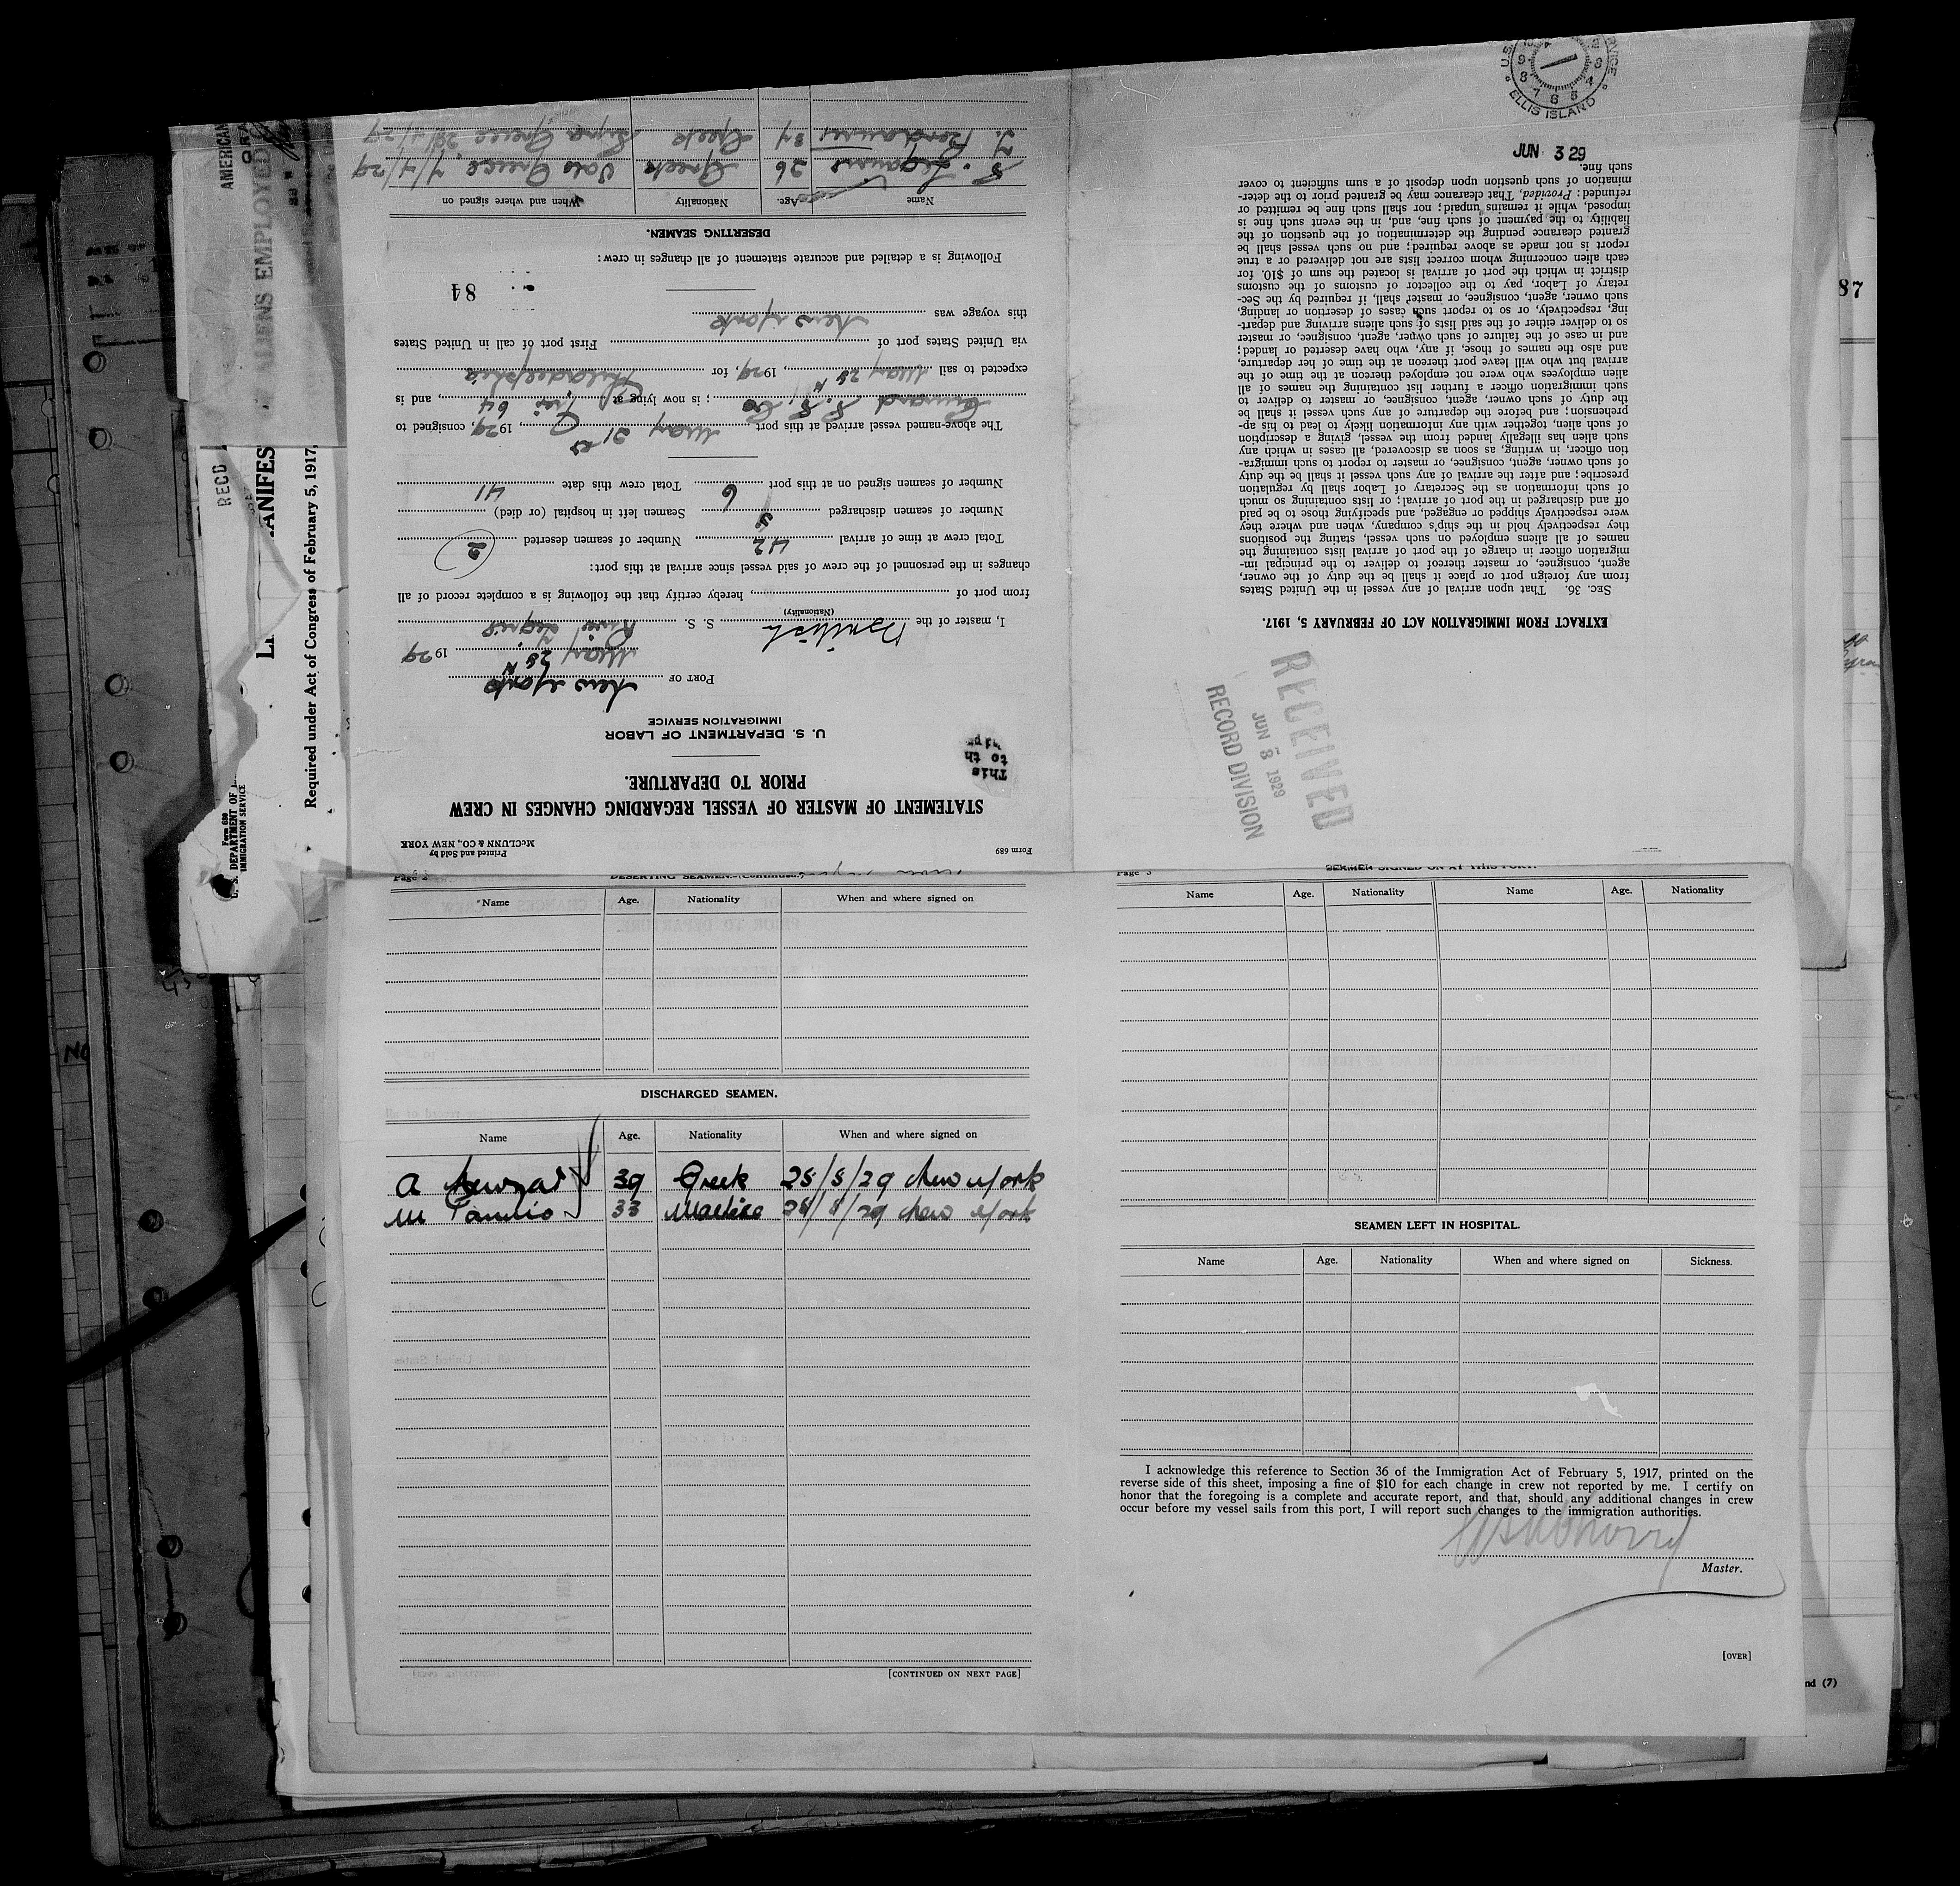 Form 689
Printed and Sold by
McCLUNN & CO., NEW YORK
STATEMENT OF MASTER OF VESSEL REGARDING CHANGES IN CREW
PRIOR TO DEPARTURE.
This
to th
U. S. DEPARTMENT OF LABOR
IMMIGRATION SERVICE
PORT OF New York
May 28th 1929
I, master of the British S. S. River
(Nationality)
from port of , hereby certify that the following is a complete record of all
changes in the personnel of the crew of said vessel since arrival at this port:
Total crew at time of arrival 42 Number of seamen deserted 2
Number of seamen discharged Seamen left in hospital (or died)
Number of seamen signed on at this port Total crew this date 41
The above-named vessel arrived at this port May 21st, 1929, consigned to
Cunard S.S. Co ; is now lying at Pier 64, and is
expected to sail May 28th, 1929, for Philadelphia
via United States port of First port of call in United States
this voyage was New York
84
Following is a detailed and accurate statement of all changes in crew:
DESERTING SEAMEN.
Name Age. Nationality When and where signed on
26 Greek Greece, 7/4/29
34 Greek Greece
EXTRACT FROM IMMIGRATION ACT OF FEBRUARY 5, 1917.
SEC. 36. That upon arrival of any vessel in the United States
from any foreign port or place it shall be the duty of the owner,
agent, consignee, or master thereof to deliver to the principal im-
migration officer in charge of the port of arrival lists containing the
names of all aliens employed on such vessel, stating the positions
they respectively hold in the ship's company, when and where they
were respectively shipped or engaged, and specifying those to be paid
off and discharged in the port of arrival; or lists containing so much
of such information as the Secretary of Labor shall by regulation
prescribe; and after the arrival of any such vessel it shall be the duty
of such owner, agent, consignee, or master to report to such immigra-
tion officer, in writing, as soon as discovered, all cases in which any
such alien has illegally landed from the vessel, giving a description
of such alien, together with any information likely to lead to his ap-
prehension; and before the departure of any such vessel it shall be
the duty of such owner, agent, consignee, or master to deliver to
such immigration officer a further list containing the names of all
alien employees who were not employed thereon at the time of the
arrival but who will leave port thereon at the time of her departure,
and also the names of those, if any, who have deserted or landed;
and in case of the failure of such owner, agent, consignee, or master
so to deliver either of the said lists of such aliens arriving and depart-
ing, respectively, or so to report such cases of desertion or landing,
such owner, agent, consignee, or master shall, if required by the Sec-
retary of Labor, pay to the collector of customs of the customs
district in which the port of arrival is located the sum of $10. for
each alien concerning whom correct lists are not delivered or a true
report is not made as above required; and no such vessel shall be
granted clearance pending the determination of the question of the
liability to the payment of such fine, and, in the event such fine is
imposed, while it remains unpaid; nor shall such fine be remitted or
refunded: Provided, That clearance may be granted prior to the deter-
mination of such question upon deposit of a sum sufficient to cover
such fine.
JUN 3 29
ELLIS ISLAND
RECEIVED
JUN 3 1929
RECORD DIVISION
AMERICAN
ALIENS EMPLOYED
RECD
ANIFES
Required under Act of Congress of February 5, 1917,
Form 680
U. S. DEPARTMENT OF
IMMIGRATION SERVICE
87
Page 2 DESERTING SEAMEN.—(Continued.)
Name Age. Nationality When and where signed on
DISCHARGED SEAMEN.
Name Age. Nationality When and where signed on
A 39 Greek 28/5/29 New York
M 33 28/5/29 New York
[CONTINUED ON NEXT PAGE]
Page 3 SEAMEN SIGNED ON AT THIS PORT.
Name Age. Nationality Name Age. Nationality
SEAMEN LEFT IN HOSPITAL.
Name Age. Nationality When and where signed on Sickness.
I acknowledge this reference to Section 36 of the Immigration Act of February 5, 1917, printed on the
reverse side of this sheet, imposing a fine of $10 for each change in crew not reported by me. I certify on
honor that the foregoing is a complete and accurate report, and that, should any additional changes in crew
occur before my vessel sails from this port, I will report such changes to the immigration authorities.
Master.
[OVER]
nd (7)